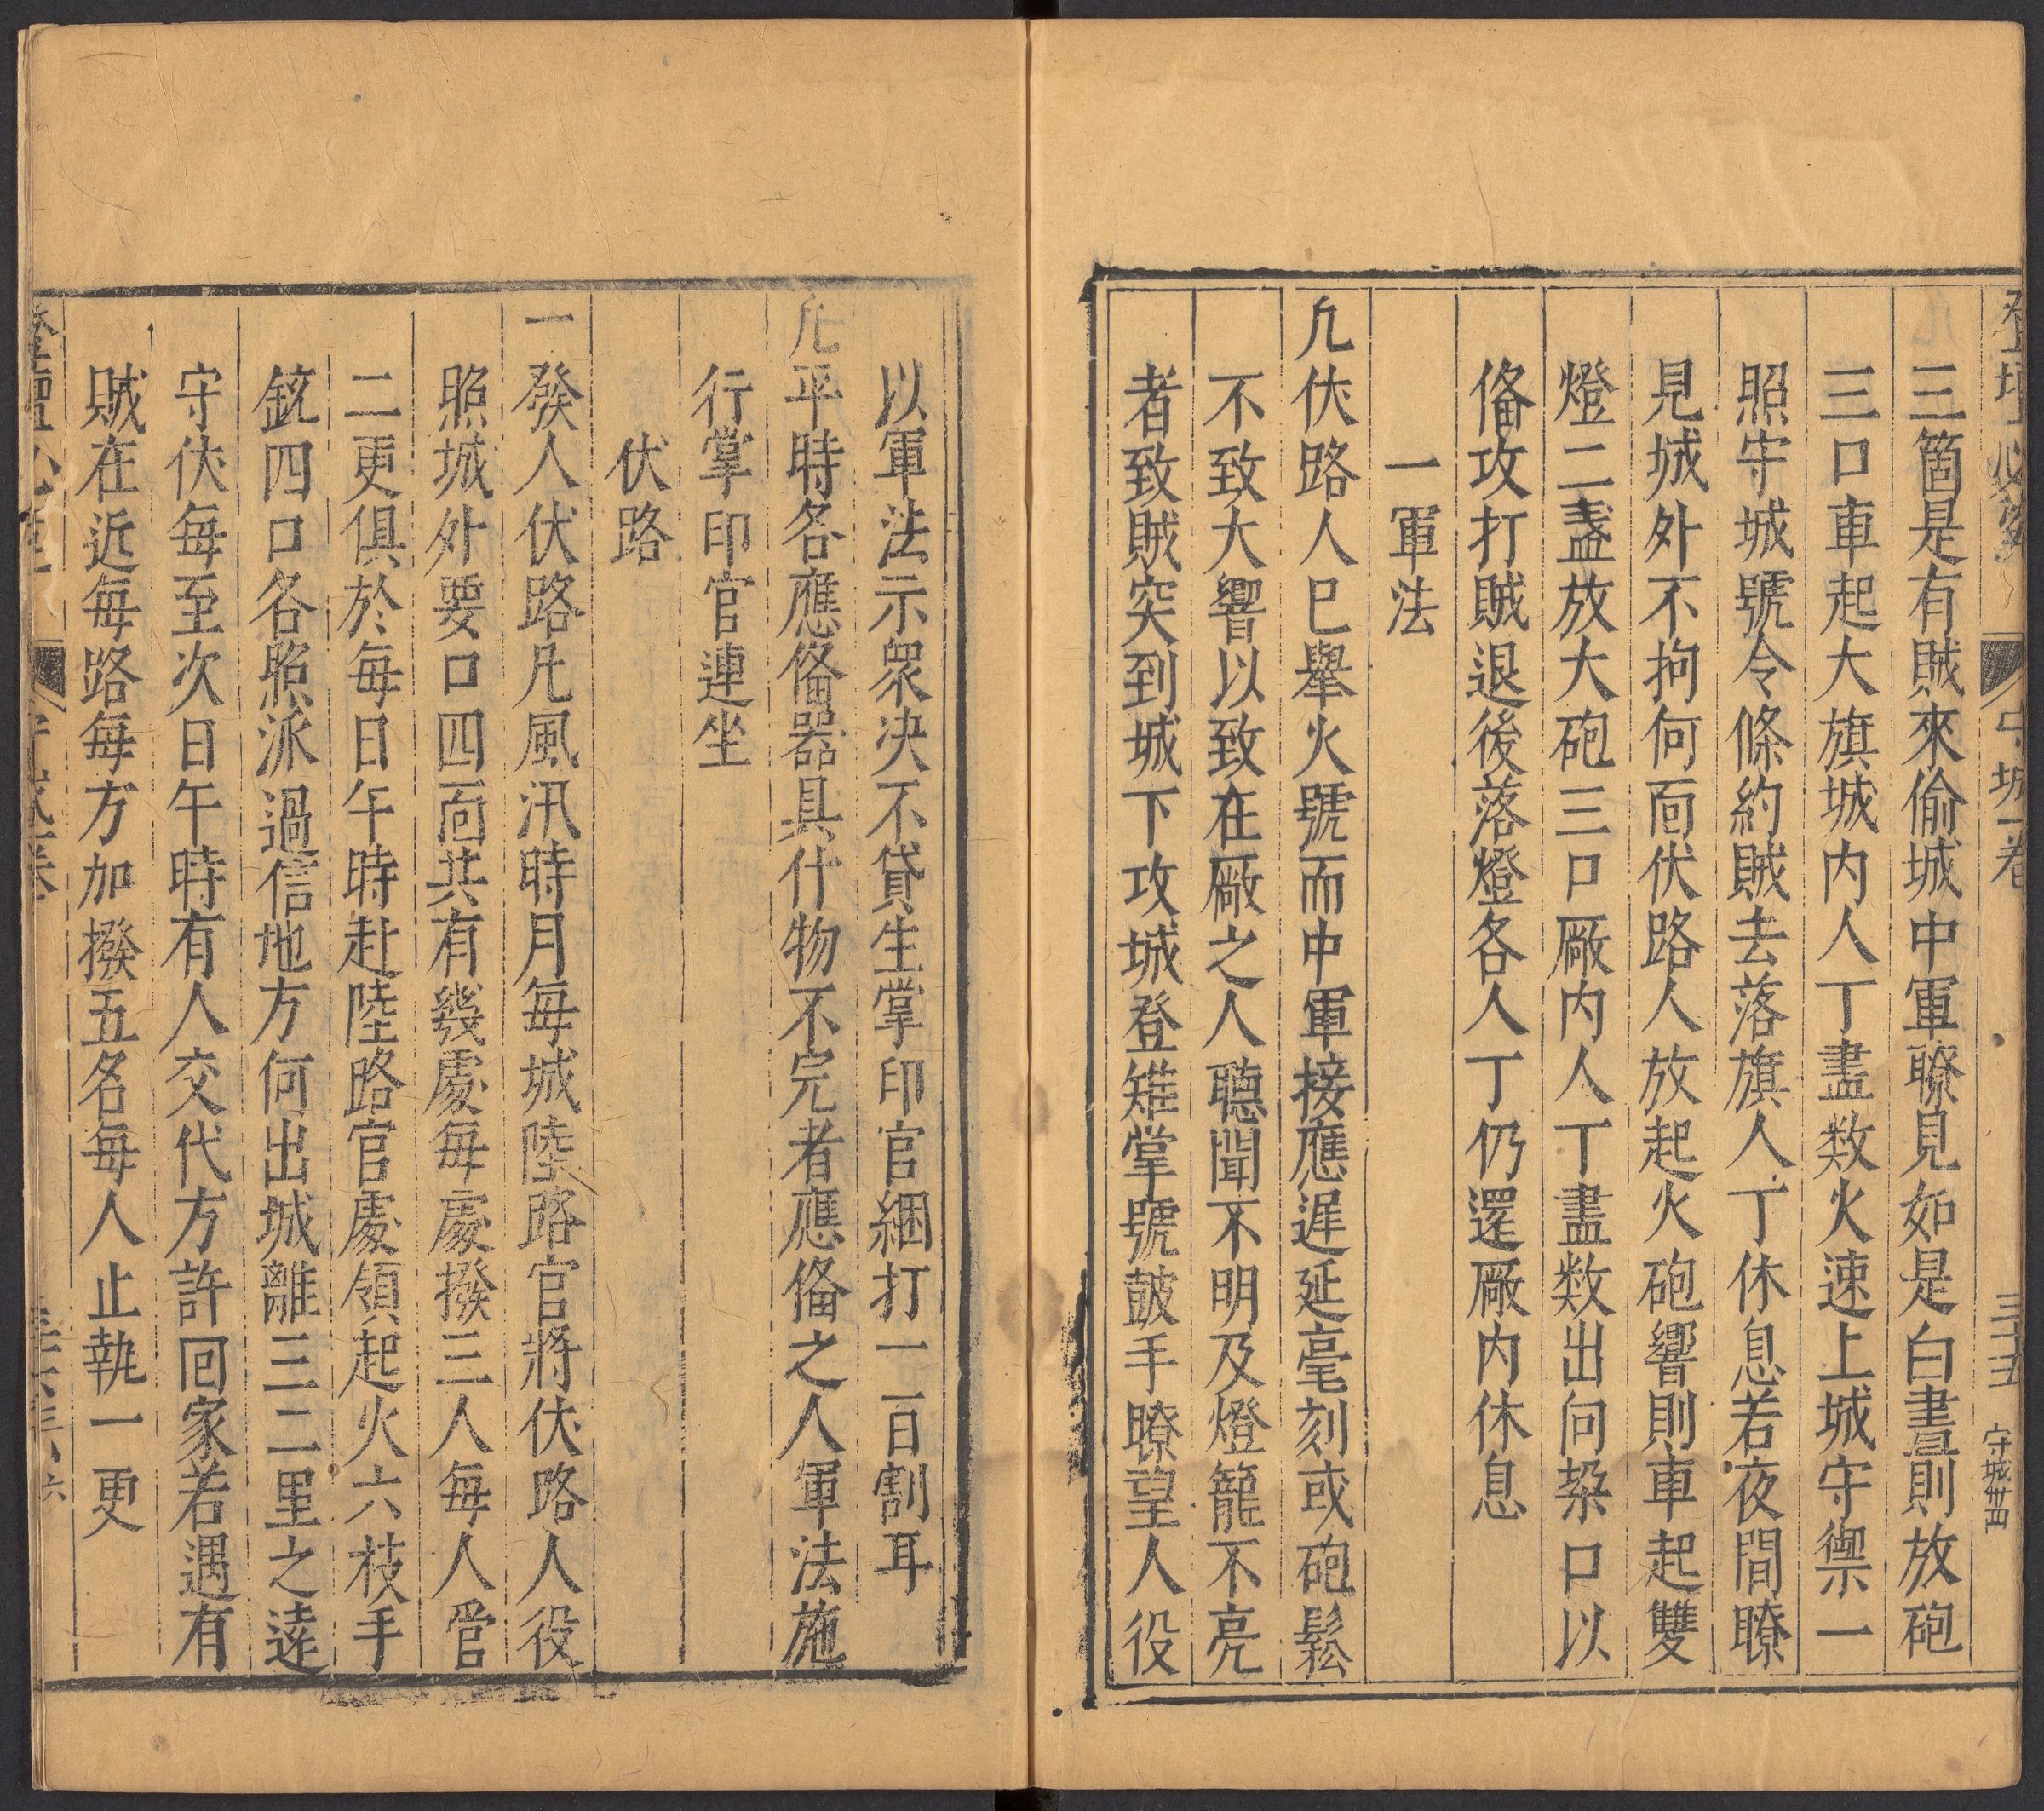 登壇必究 守城一卷 三十五 守城卅四
三箇是有賊來偷城中軍瞭見如是白晝則放砲
三口車起大旗城內人丁盡数火速上城守禦一
照守城號令條約賊去落旗人丁休息若夜間瞭
見城外不拘何面伏路人放起火砲響則車起雙
燈二盞放大砲三口厰內人丁盡数出向垜口以
俻攻打賊退後落燈各人丁仍還厰內休息
一軍法
凢伏路人已舉火號而中軍接應遲延毫刻或砲鬆
不致大響以致在厰之人聽聞不明及燈籠不亮
者致賊突到城下攻城登雉掌號皷手瞭望人役
以軍法示衆决不貸生掌印官綑打一百割耳
凢平時各應俻器具什物不完者應俻之人軍法施
行掌印官連坐
伏路
一發人伏路凢風汛時月每城陸路官將伏路人役
照城外要口四面共有幾處每處撥三人每人管
二更俱於每日午時赴陸路官處領起火六枝手
銃四口各照派過信地方向出城離三二里之遠
守伏每至次日午時有人交代方許囘家若遇有
賊在近每路每方加撥五名每人止執一更